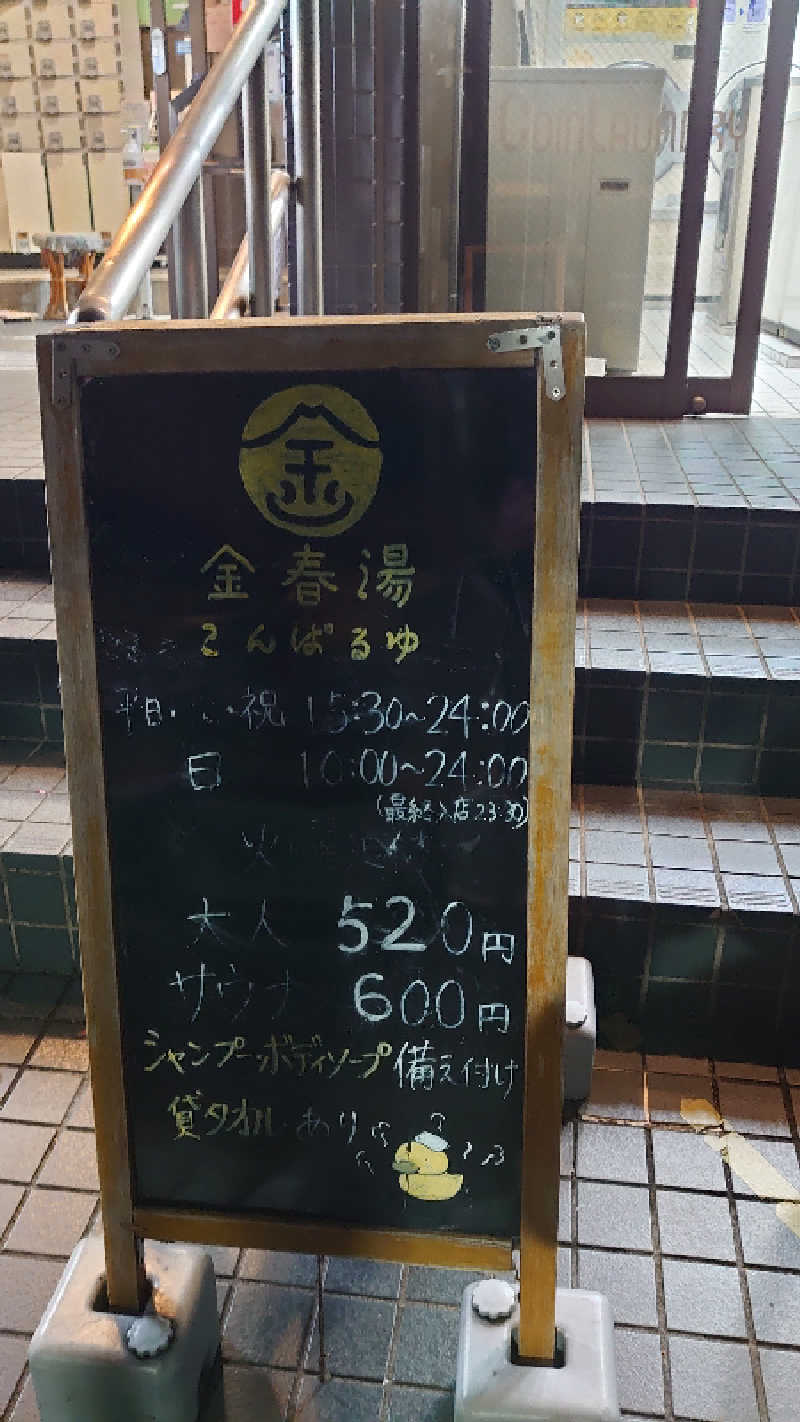 COIN LAUNDRY
金
金春湯
こんぱるゆ
平日・祝 15:30~24:00
日 10:00~24:00
(最終入店23:30)
火
大人 520円
サウナ 600円
シャンプー、ボディソープ備え付け
貸タオルあり